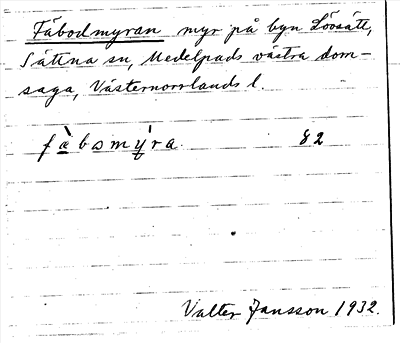 Fäbodmyran myr på byn Lövsätt,
Sättna sn, Medelpads västra dom-
saga, Västernorrlands l.
fàbsmýra. 82
Valter Jansson 1932.